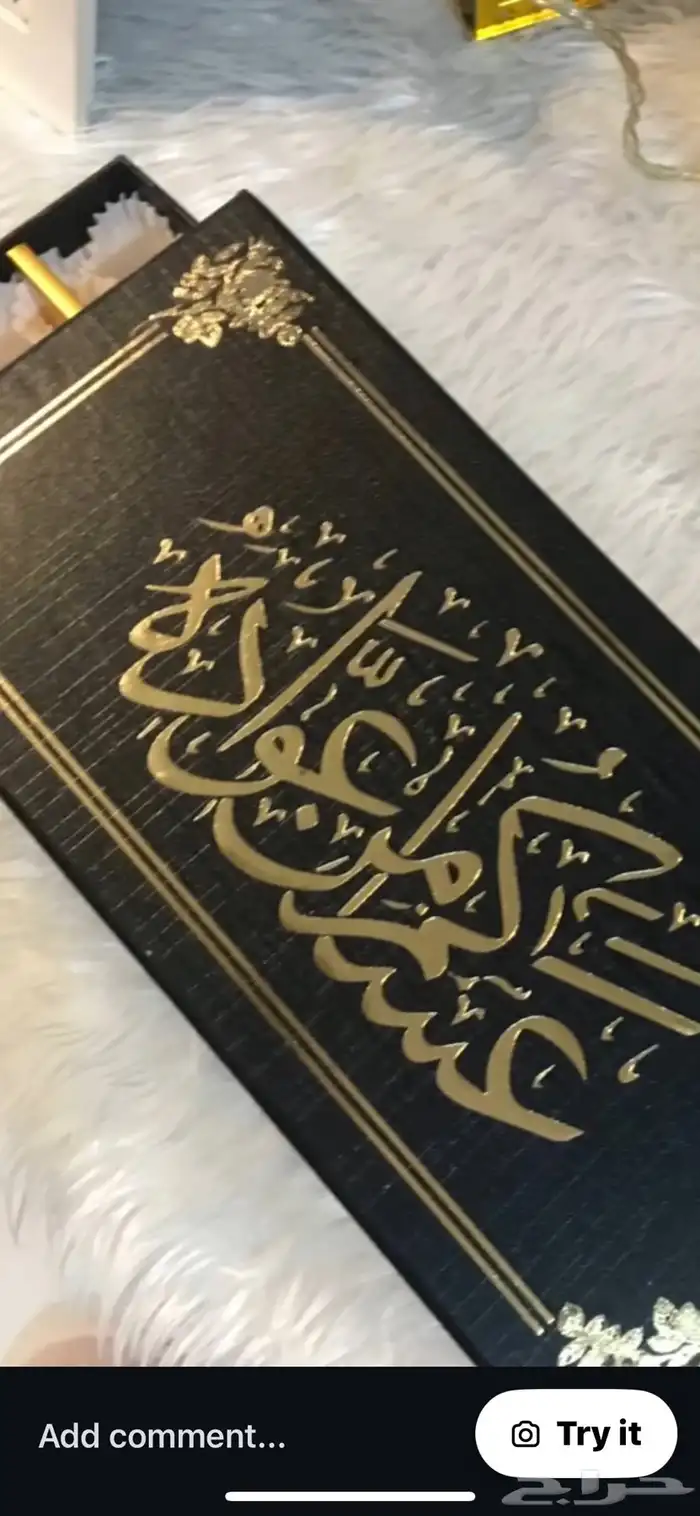 عساكم من عوّاده
Add comment...
Try it
حراج